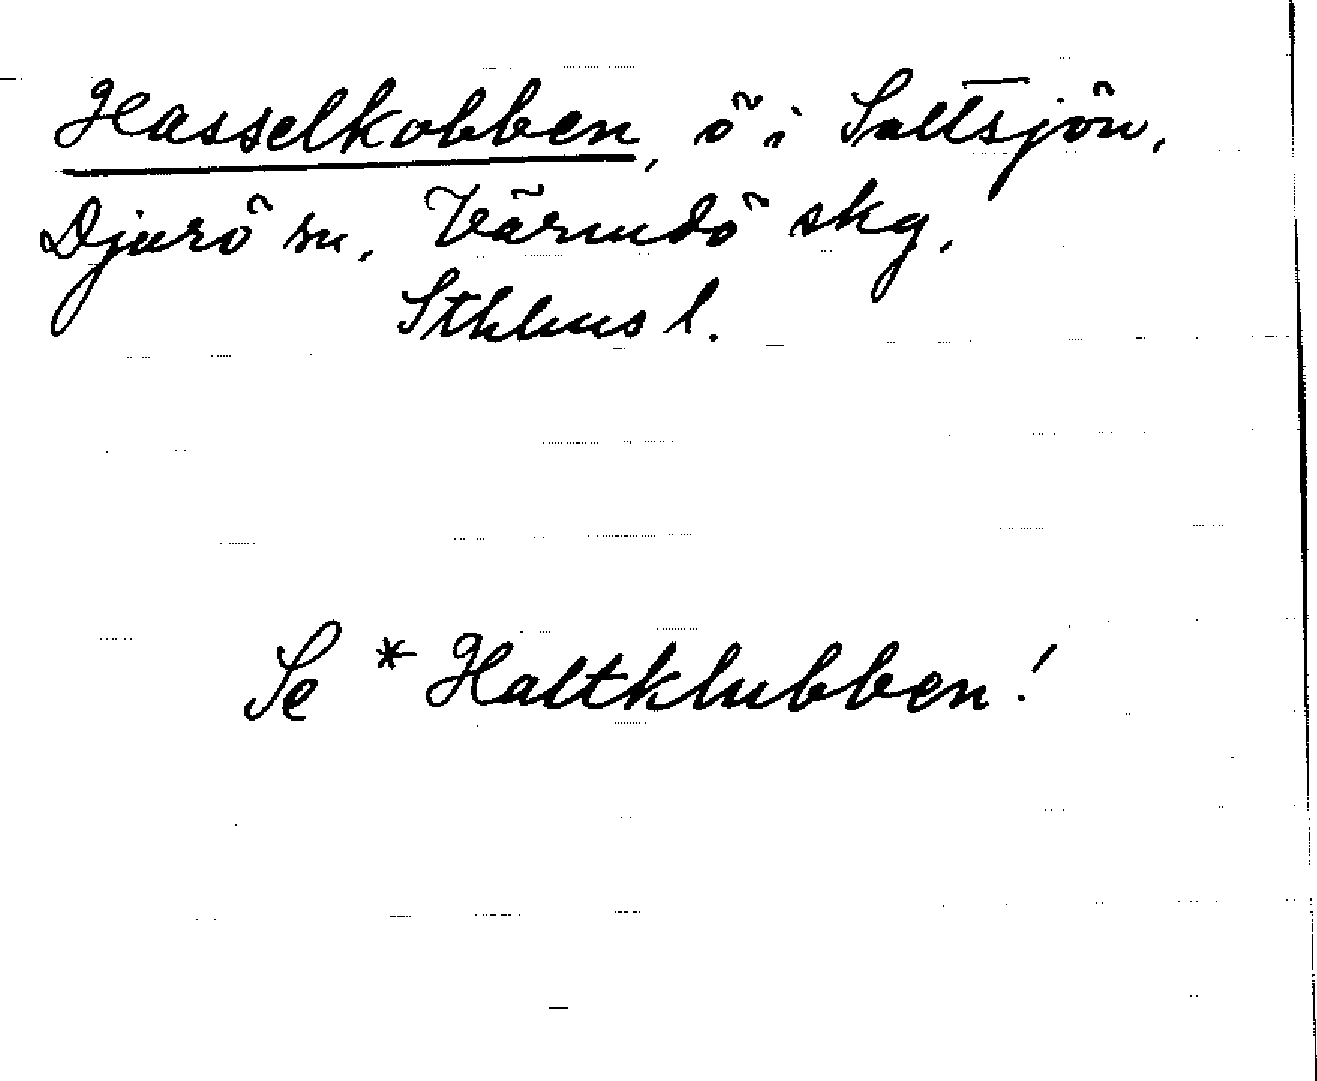 Hasselkobben, ö i Saltsjön,
Djurö sn, Värmdö skg,
Sthlms l.
Se * Haltklubben!